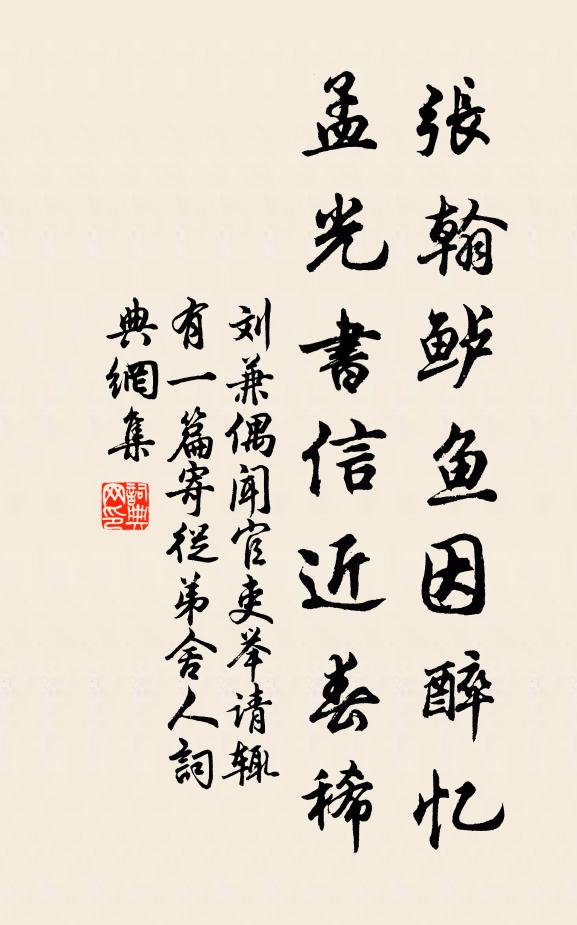 張翰鲈鱼因醉忆
孟光書信近春稀
刘兼偶闻官吏举请辄
有一篇寄從弟舍人詞
典網集
詞典
网印